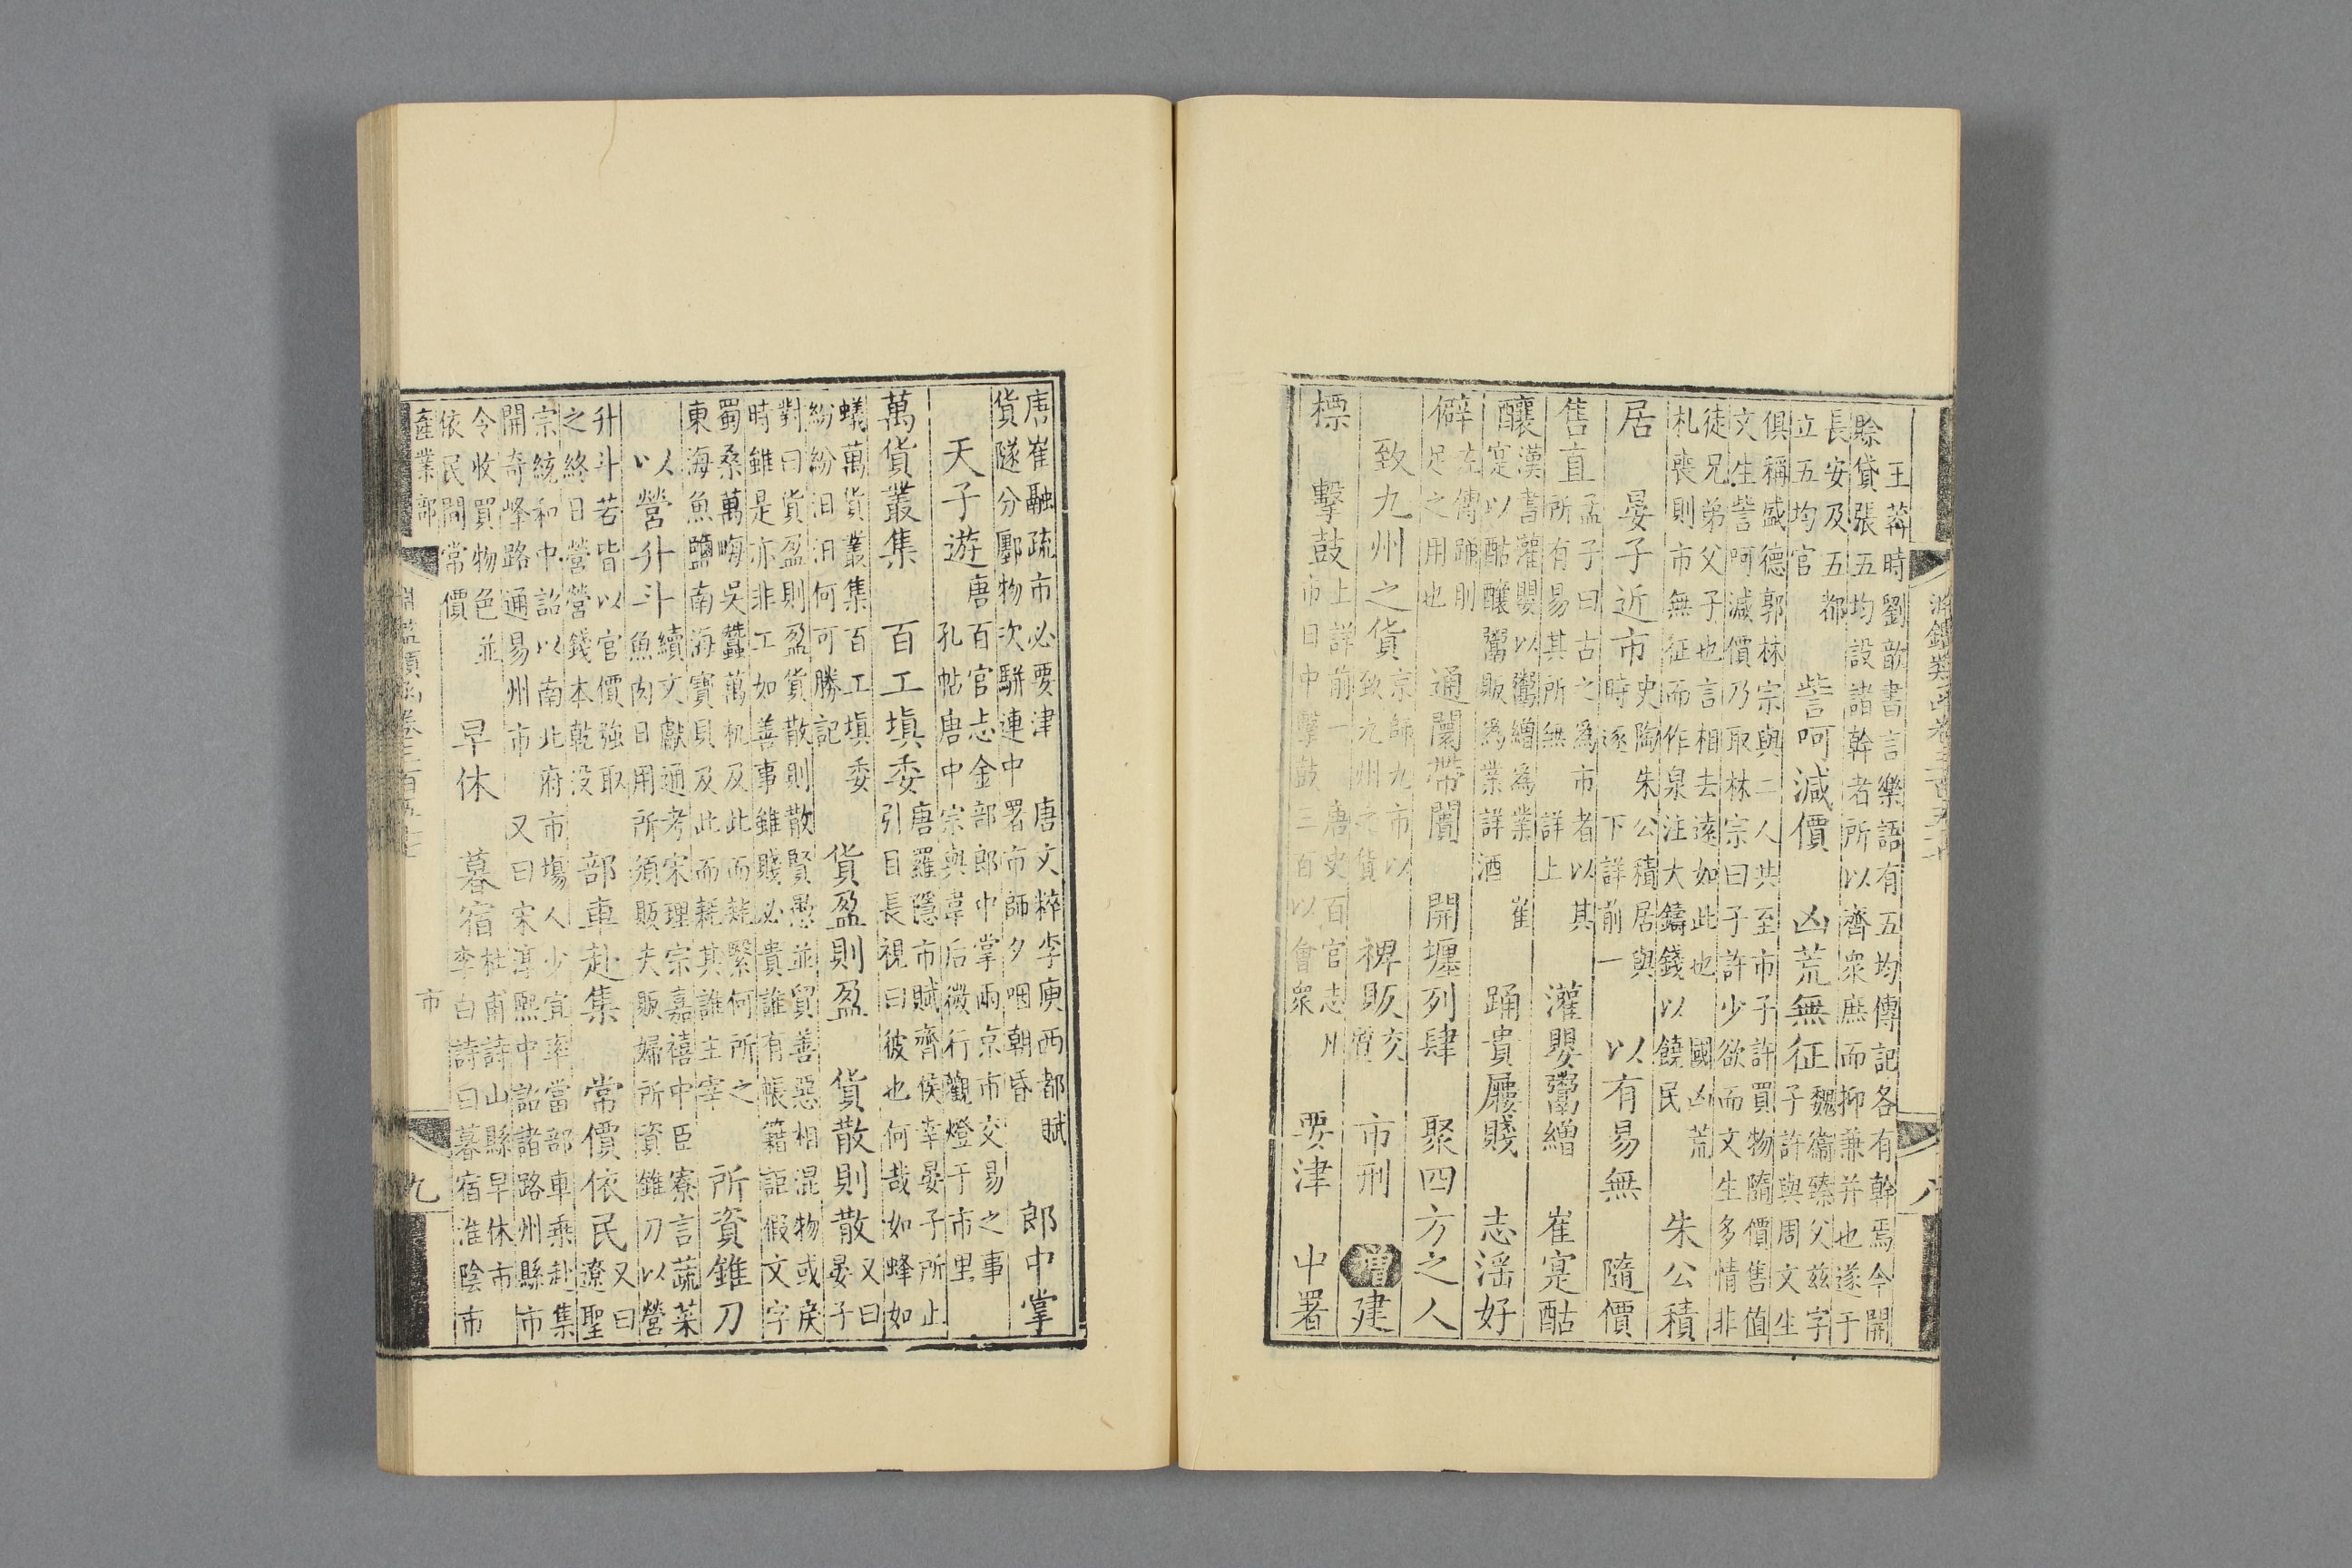 王莽時劉歆書言樂語有五均傳記各有幹焉今開
賖貸張五均設諸幹者所以齊衆庶而抑兼并也遂于
長安及五都
立五均官
訾呵減價
凶荒無征
魏衞臻父兹字
子許與周文生
俱稱盛德郭林宗與二人共至市子許買物隨價售值
文生訾呵減價乃取林宗曰子許少欲而文生多情非
徒兄弟父子也言相去遠如此也
國凶荒
札喪則市無征而作泉注大鑄錢以饒民
朱公積
居
史陶朱公積居與
時逐下詳前一
晏子近市
以有易無
隨價
售直
孟子曰古之為市者以其
所有易其所無詳上
灌嬰鬻繒
崔寔酤
釀
漢書灌嬰以鬻繒為業崔
寔以酤釀鬻販為業詳酒
踊貴屨賤
志淫好
僻
左傳踊刖
足之用也
通闤帶闠
開壥列肆
聚四方之人
致九州之貨
京師九市以
致九州之貨
裨販
交
質
市刑
增
建
標
擊鼓
上詳前一唐史百官志州
市日中擊鼓三百以會衆
要津
中署
唐崔融疏市必要津唐文粹李庾西都賦
貨隧分鄽物次駢連中署市師夕咽朝昏
郎中掌
天子遊
唐百官志金部郎中掌兩京市交易之事
孔帖唐中宗與韋后微行觀燈于市里
萬貨叢集
百工塡委
唐羅隱市賦齊侯幸晏子所止
引目長視曰彼也何哉如蜂如
蟻萬貨叢集百工塡委
紛紛汨汨何可勝記
貨盈則盈
貨散則散
又曰
晏子
對曰貨盈則盈貨散則散賢愚並貿善惡相混物或戾
時雖是亦非工如善事雖賤必貴誰有帳籍詎假文字
蜀桑萬畮吳蠶萬机及此而耗繄何所之
東海魚鹽南海寶貝及此而耗其誰主宰
所資錐刀
以營升斗
續文獻通考宋理宗嘉禧中臣寮言蔬菜
魚肉日用所須販夫販婦所資錐刀以營
升斗若皆以官價強取
之終日營營錢本乾没
部車赴集
常價依民
又曰
遼聖
宗統和中詔以南北府市塲人少宜率當部車乘赴集
開奇峰路通易州市又曰宋淳熙中詔諸路州縣市
令收買物色並
依民間常價
早休
暮宿
杜甫詩山縣早休市
李白詩曰暮宿淮陰市
產業部
市
九